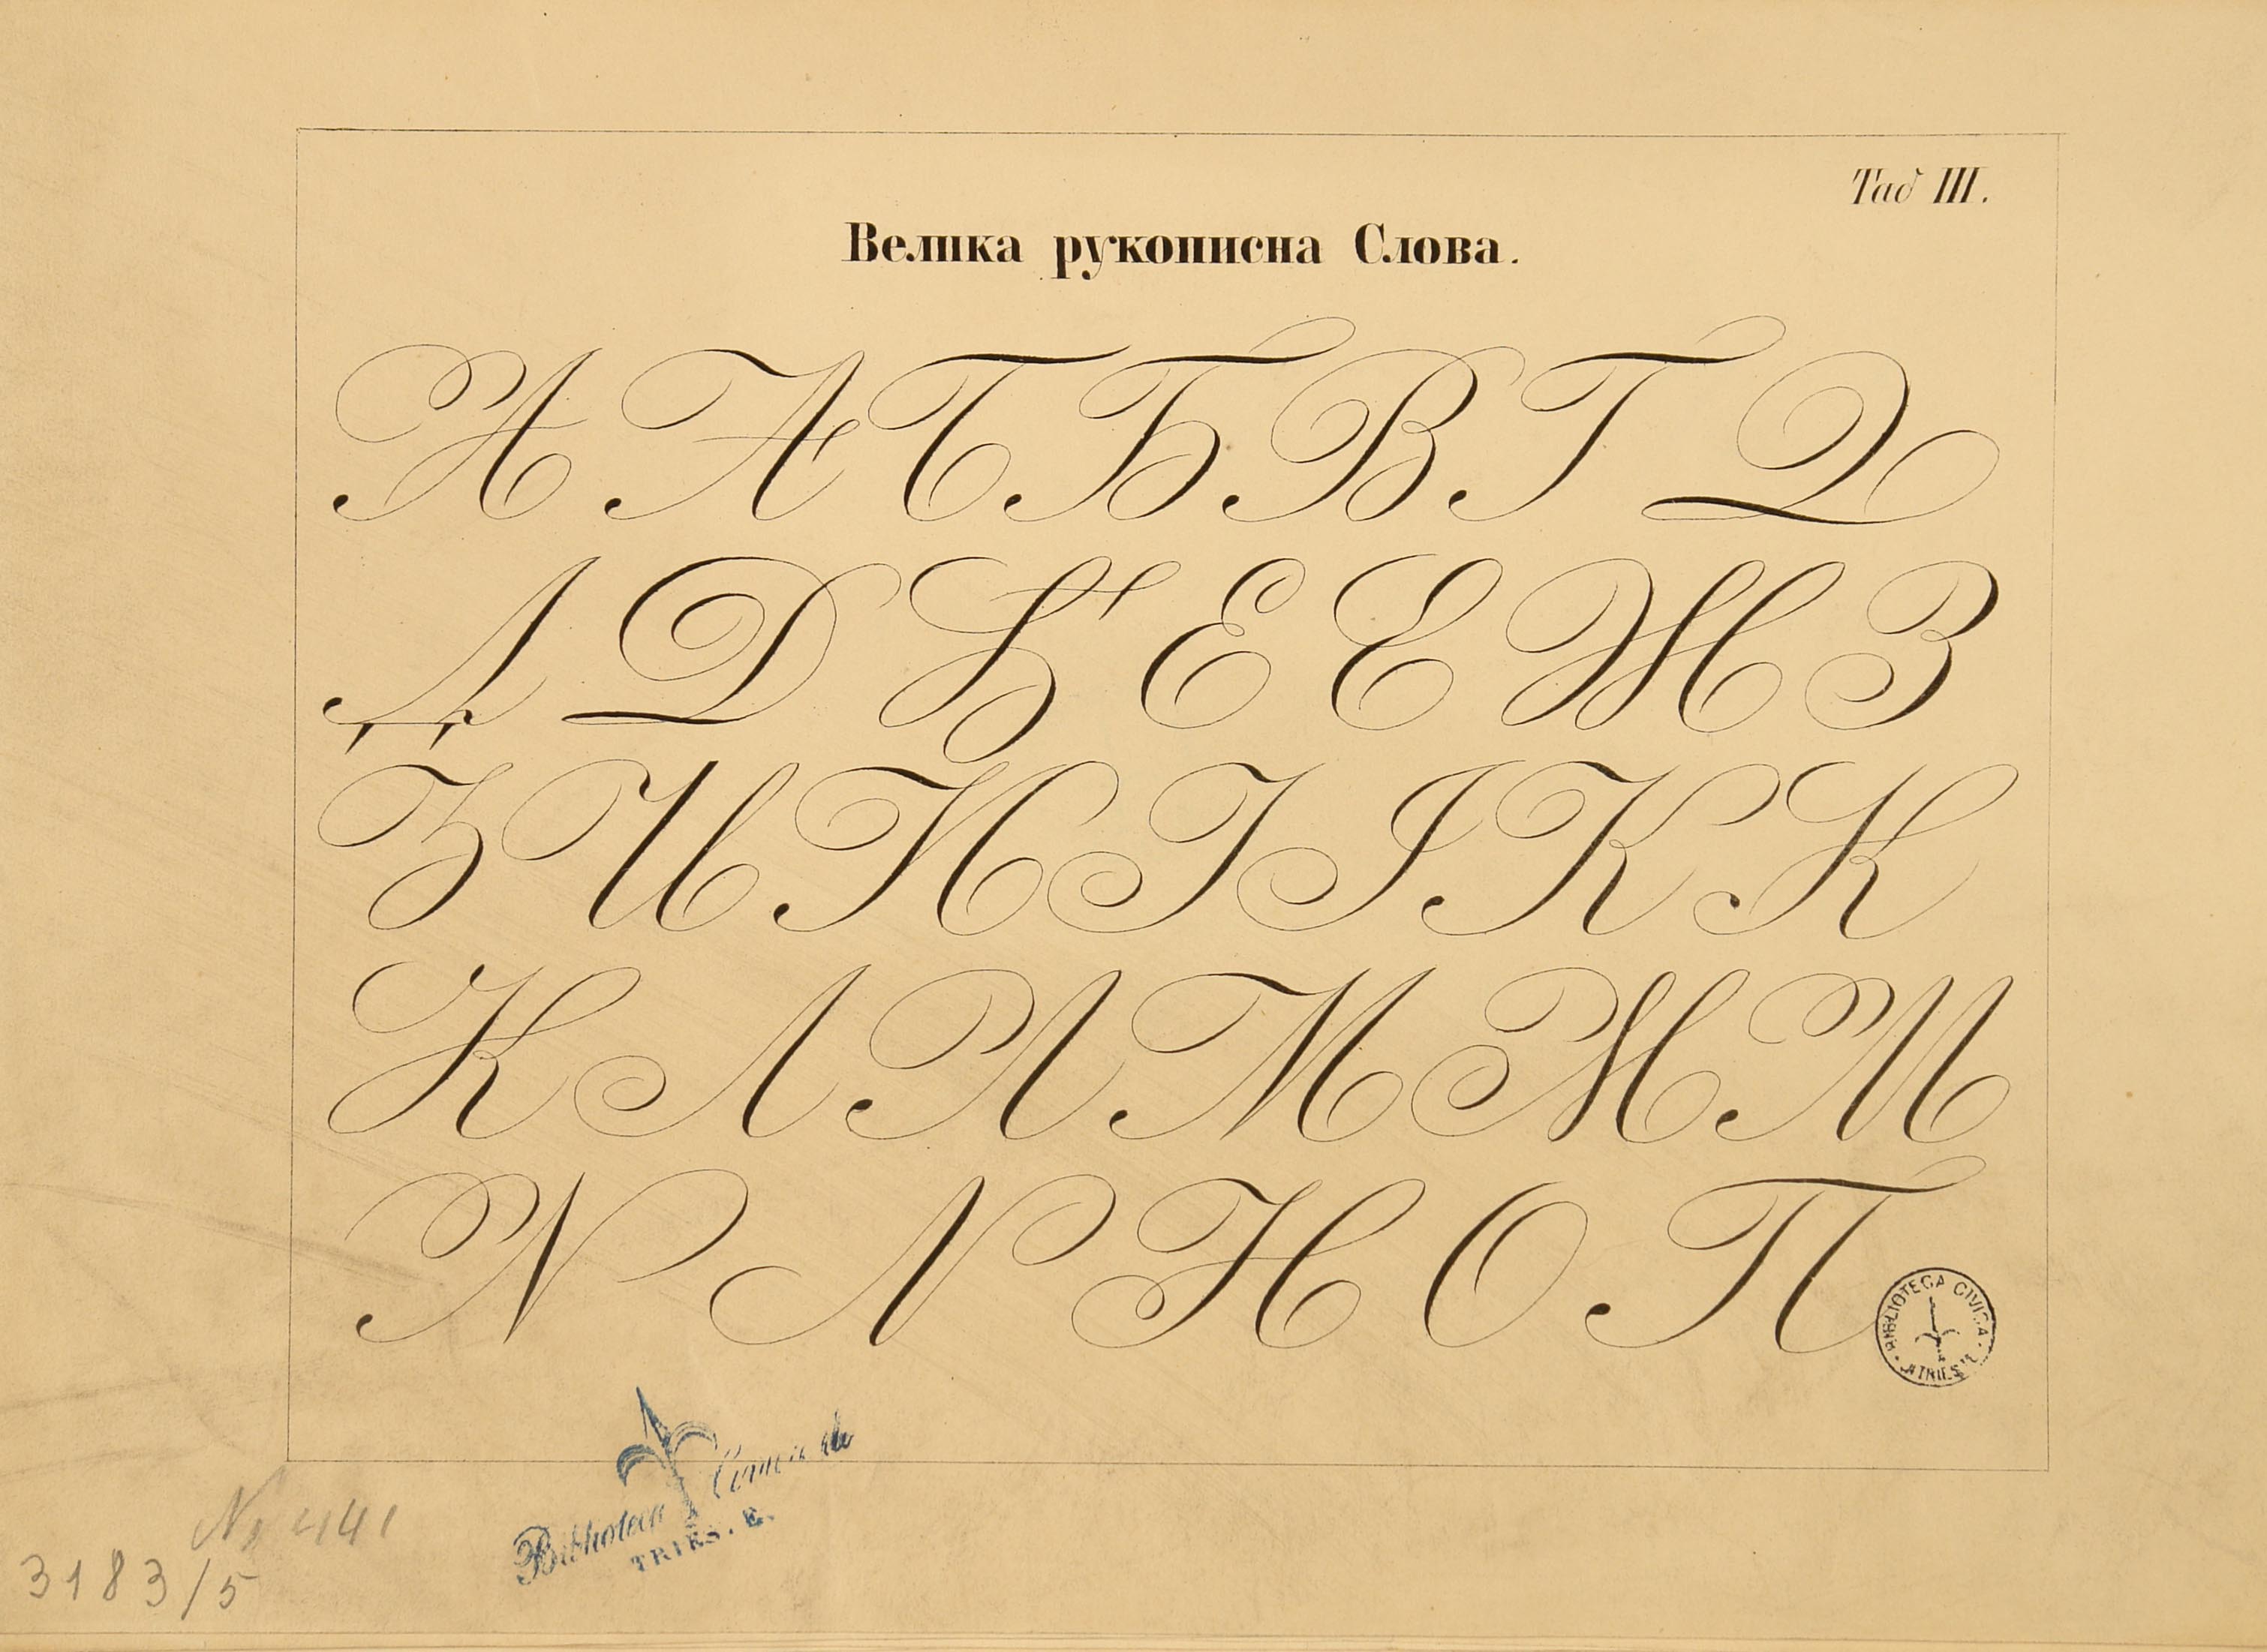 Таб III.
Велика рукописна Слова.
А А Б Б В Г Д
Д Д Ђ Е Е Ж З
З И И І І К К
К Л Л М М М
N N Н О П
BIBLIOTECA CIVICA TRIESTE
Biblioteca Civica
TRIESTE
No 441
3183/5